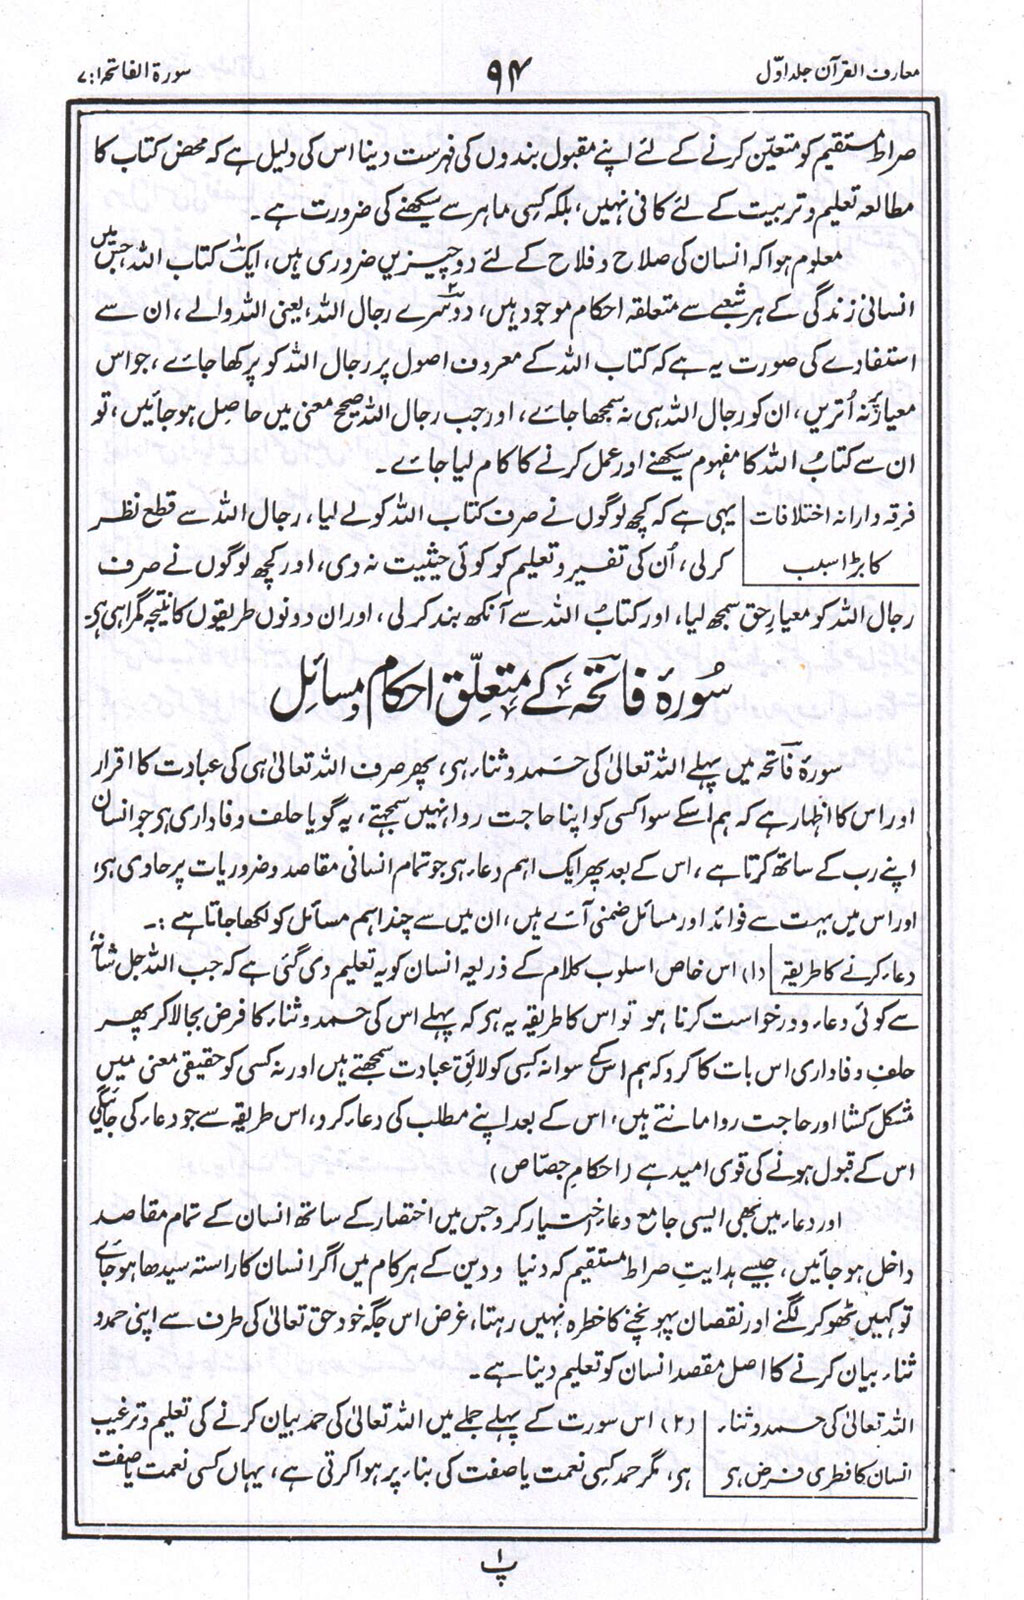 معارف القرآن جلد اوّل
۹۴
سورة الفاتحہ ۱: ۷
صراط مستقیم کو متعیّن کرنے کے لئے اپنے مقبول بندوں کی فہرست دینا اس کی دلیل ہے کہ محض کتاب کا
مطالعہ تعلیم و تربیت کے لئے کافی نہیں، بلکہ کسی ماہر سے سیکھنے کی ضرورت ہے۔
معلوم ہوا کہ انسان کی صلاح و فلاح کے لئے دو چیزیں ضروری ہیں، ایک۱ کتاب اللہ جس میں
انسانی زندگی کے ہر شعبے سے متعلقہ احکام موجود ہیں، دوسرے۲ رجال اللہ، یعنی اللہ والے، ان سے
استفادے کی صورت یہ ہے کہ کتاب اللہ کے معروف اصول پر رجال اللہ کو پرکھا جائے، جو اس
معیار پر نہ اُتریں، ان کو رجال اللہ ہی نہ سمجھا جائے، اور جب رجال اللہ صحیح معنی میں حاصل ہو جائیں، تو
ان سے کتابُ اللہ کا مفہوم سیکھنے اور عمل کرنے کا کام لیا جائے۔
فرقہ وارانہ اختلافات یہی ہے کہ کچھ لوگوں نے صرف کتاب اللہ کو لے لیا، رجال اللہ سے قطع نظر
کا بڑا سبب کر لی، اُن کی تفسیر و تعلیم کو کوئی حیثیت نہ دی، اور کچھ لوگوں نے صرف
رجال اللہ کو معیارِ حق سمجھ لیا، اور کتابُ اللہ سے آنکھ بند کر لی، اور ان دونوں طریقوں کا نتیجہ گمراہی ہی۔
سُورۂ فاتحہ کے متعلّق احکام و مسائل
سورۂ فاتحہ میں پہلے اللہ تعالیٰ کی حمد و ثناء ہی، پھر صرف اللہ تعالیٰ ہی کی عبادت کا اقرار
اور اس کا اظہار ہے کہ ہم اسکے سوا کسی کو اپنا حاجت روا نہیں سمجھتے، یہ گویا حلف وفاداری ہی جو انسان
اپنے رب کے ساتھ کرتا ہے، اس کے بعد پھر ایک اہم دعاء ہی جو تمام انسانی مقاصد و ضروریات پر حاوی ہی،
اور اس میں بہت سے فوائد اور مسائل ضمنی آئے ہیں، ان میں سے چند اہم مسائل کو لکھا جاتا ہے :۔
دعاء کرنے کا طریقہ (۱) اس خاص اسلوب کلام کے ذریعہ انسان کو یہ تعلیم دی گئی ہے کہ جب اللہ جل شانہٗ
سے کوئی دعاء و درخواست کرنا ہو تو اس کا طریقہ یہ ہی کہ پہلے اس کی حمد و ثناء کا فرض بجا لاکر پھر
حلفِ وفاداری اس بات کا کرو کہ ہم اس کے سوا نہ کسی کو لائقِ عبادت سمجھتے ہیں اور نہ کسی کو حقیقی معنی میں
مشکل کشا اور حاجت روا مانتے ہیں، اس کے بعد اپنے مطلب کی دعاء کرو، اس طریقہ سے جو دعاء کی جائیگی
اس کے قبول ہونے کی قوی امید ہے (احکامِ جصّاص)
اور دعاء میں بھی ایسی جامع دعاء اختیار کرو جس میں اختصار کے ساتھ انسان کے تمام مقاصد
داخل ہو جائیں، جیسے ہدایتِ صراط مستقیم کہ دنیا و دین کے ہر کام میں اگر انسان کا راستہ سیدھا ہو جائے
تو کہیں ٹھوکر لگنے اور نقصان پہونچنے کا خطرہ نہیں رہتا، غرض اس جگہ خود حق تعالیٰ کی طرف سے اپنی حمد و
ثناء بیان کرنے کا اصل مقصد انسان کو تعلیم دینا ہے۔
اللہ تعالیٰ کی حمد و ثناء (۲) اس سورت کے پہلے جملے میں اللہ تعالیٰ کی حمد بیان کرنے کی تعلیم و ترغیب
انسان کا فطری فرض ہی ہی، مگر حمد کسی نعمت یا صفت کی بناء پر ہوا کرتی ہے، یہاں کسی نعمت یا صفت
پ۱